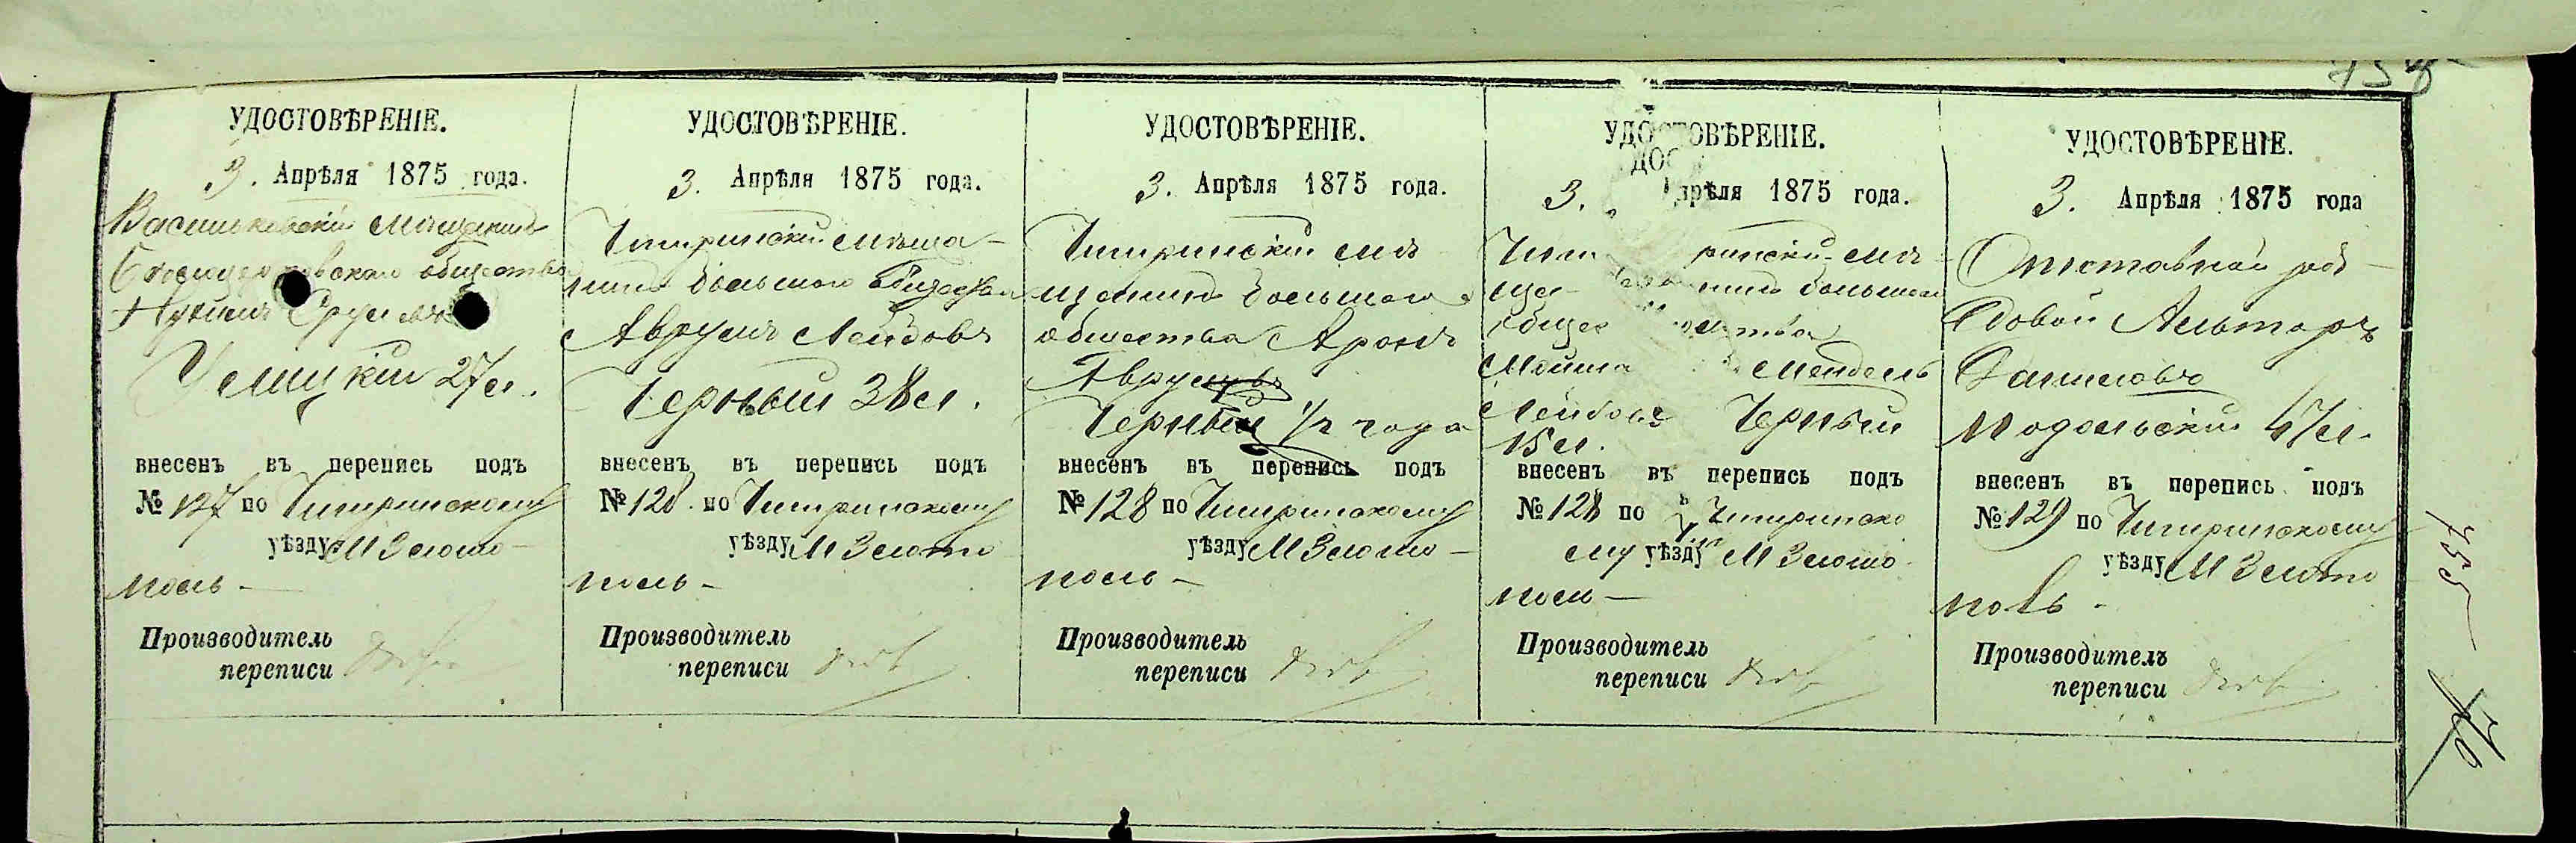 УДОСТОВѢРЕНІЕ.
3. Апрѣля 1875 года.
Васильковскій мѣщанинъ
общества
Нухимъ Сруль
27 л.
внесенъ въ перепись подъ
№ 127 по Чигиринскому
уѣзду М Злото-
поль-
Производитель
переписи
УДОСТОВѢРЕНІЕ.
3. Апрѣля 1875 года.
Чигиринскій мѣща-
нинъ большого общества
Аврумъ Лейбовъ
Черный 38 л.
внесенъ въ перепись подъ
№ 128. по Чигиринскому
уѣзду М Злото
поль-
Производитель
переписи
УДОСТОВѢРЕНІЕ.
3. Апрѣля 1875 года.
Чигиринскій мѣ-
щанинъ большого
общества Аронъ
Аврумовъ
Черный 1/2 года
внесенъ въ перепись подъ
№ 128 по Чигиринскому
уѣзду М Злото-
поль-
Производитель
переписи
УДОСТОВѢРЕНІЕ.
3. Апрѣля 1875 года.
Чигиринскій мѣ-
ща-нинъ большого
общества
Мойша Мендель
Лейбовъ Черный
15 л.
внесенъ въ перепись подъ
№ 128 по Чигиринско
му уѣзду М Злото-
поль-
Производитель
переписи
УДОСТОВѢРЕНІЕ.
3. Апрѣля 1875 года
Отставной ря-
довой Альтеръ
Даниловъ
Подольскій 47 л.
внесенъ въ перепись подъ
№ 129 по Чигиринскому
уѣзду М Злото
поль-
Производитель
переписи